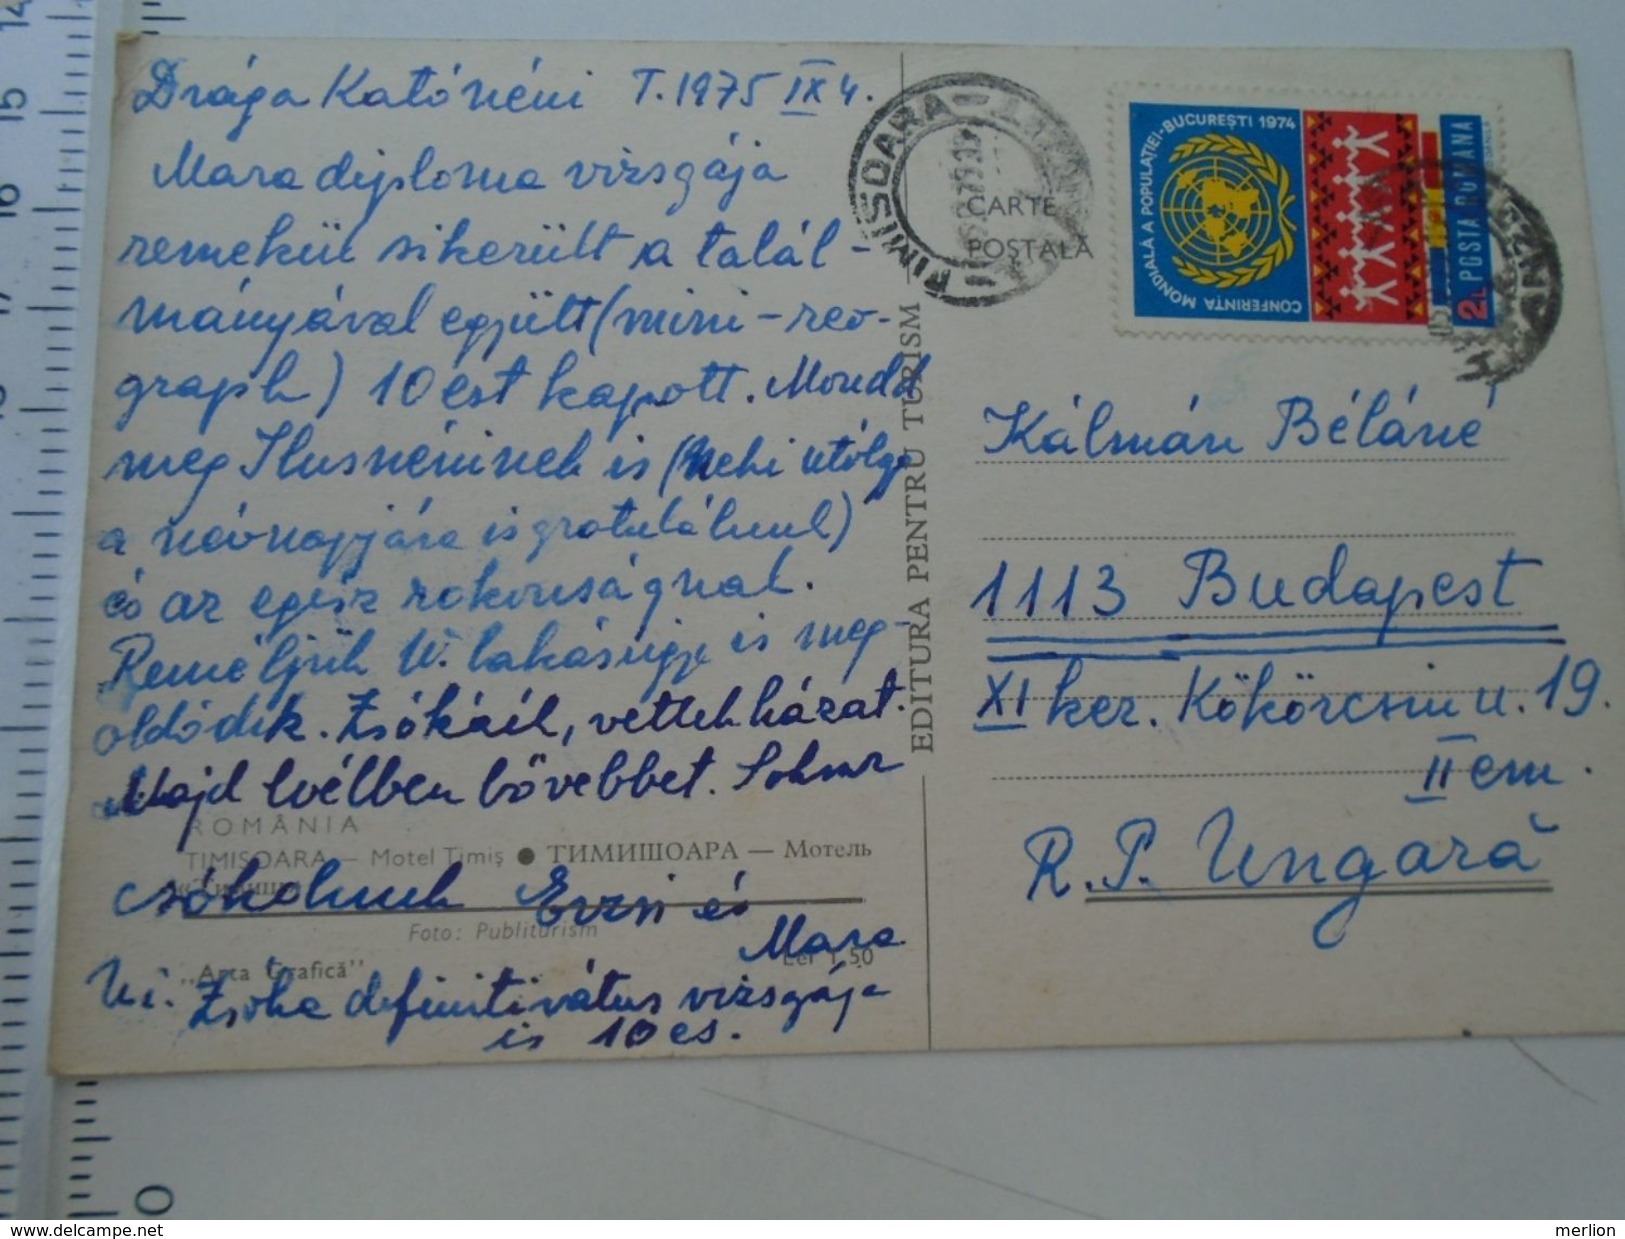 Drága Katónéni T. 1975 IX 4.
Mara diploma vizsgája
remekül sikerült a talál-
mányával együtt (mini-reo-
graph) 10 est kapott. Mondd
meg Ilusnéninek is (Neki utólag
a névnapjára is gratulálunk)
és az egész rokonságnak.
Reméljük W. lakásügye is meg-
oldódik. Zsókáék, vettek házat.
Majd levélben bővebbet. Sokszor
csókolunk Erzsi és
Mara
Ui. Zsóka definitivátus vizsgája
is 10 es.
ROMÂNIA
TIMIȘOARA — Motel Timiș ● ТИМИШОАРА — Мотель
Foto: Publiturism
„Arta Grafică”
Lei 1,50
EDITURA PENTRU TURISM
CARTE
POȘTALĂ
TIMISOARA
CONFERINȚA MONDIALĂ A POPULAȚIEI-BUCUREȘTI 1974
2L POSTA ROMANA
Kálmán Béláné
1113 Budapest
XI ker. Kökörcsin u. 19.
II em.
R. P. Ungară
14
15
16
17
0
merlion